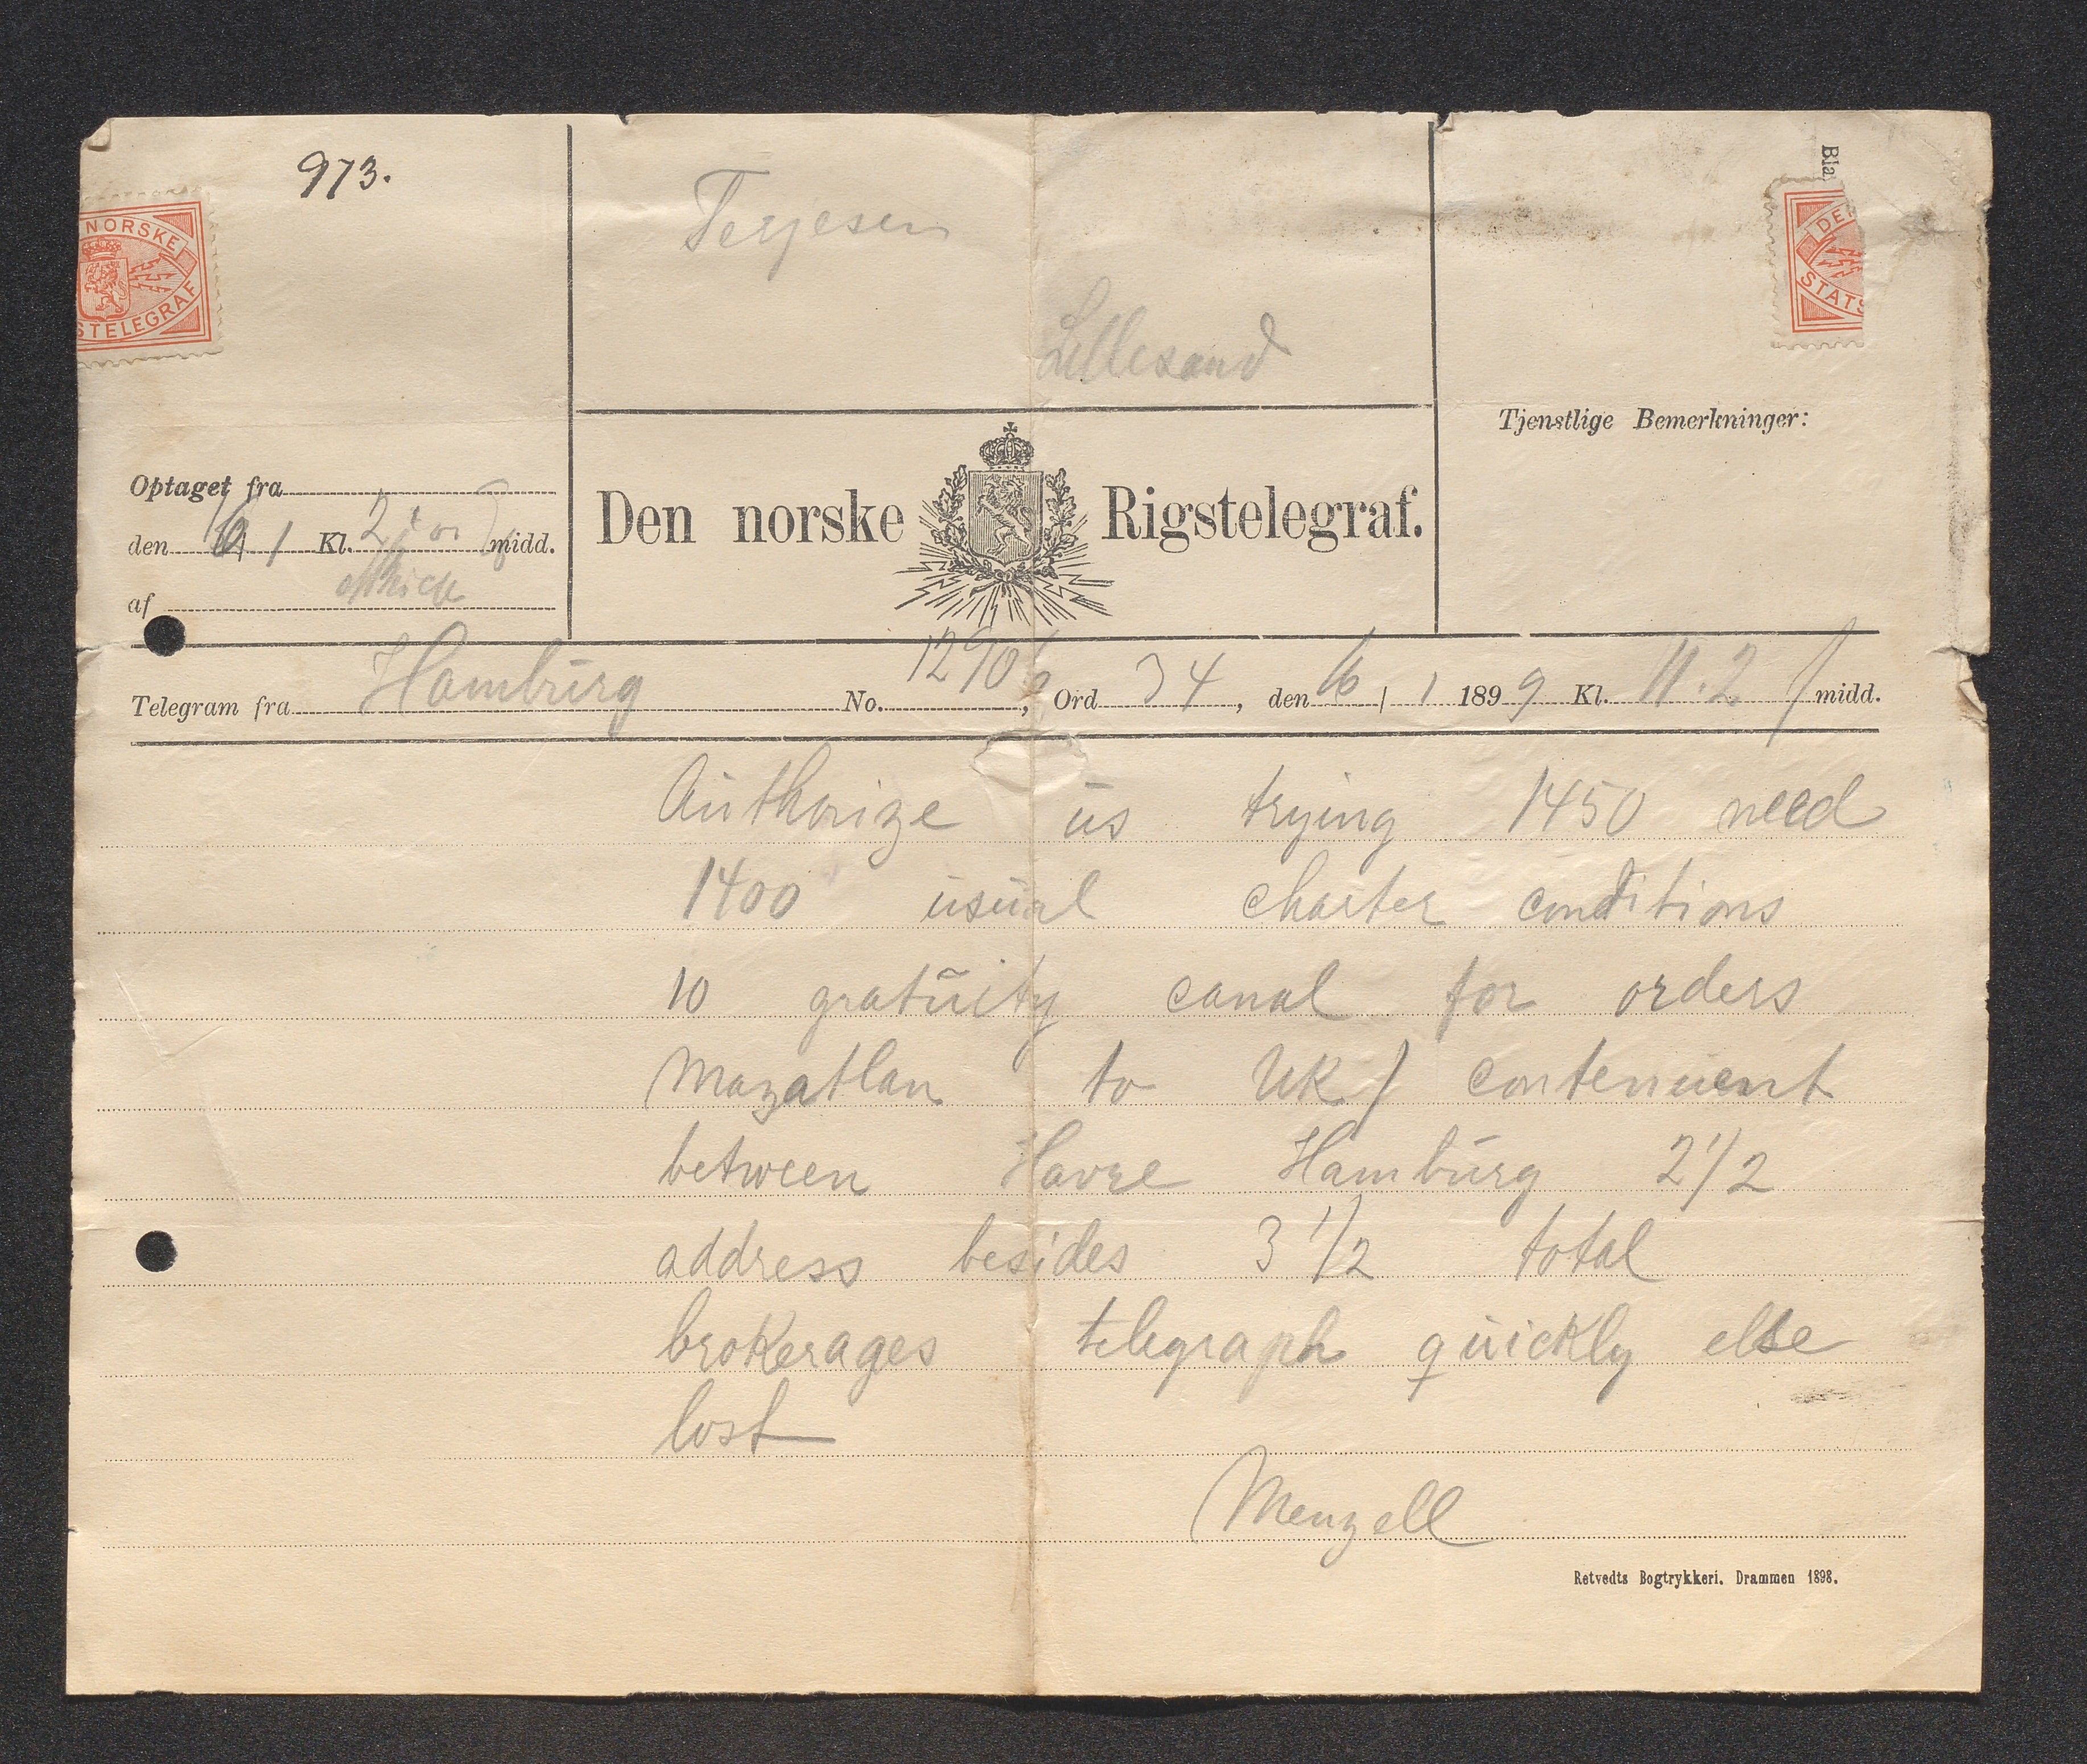 973.
NORSKE
STELEGRAF
Terjesen
Lillesand
Bla
DE
STATS
Tjenstlige Bemerkninger:
Optaget fra
den 6/1 Kl. 2 midd.
af
Den norske Rigstelegraf.
Telegram fra Hamburg No. 1290, Ord 34, den 6/1 1899 Kl. 11.2 f midd.
Authorize us trying 1450 need
1400 usual charter conditions
10 gratuity canal for orders
Mazatlan to UK/ contenuent
between Havre Hamburg 2 1/2
address besides 3 1/2 total
brokerages telegraph quickly else
lost
Menzell
Retvedts Bogtrykkeri. Drammen 1898.